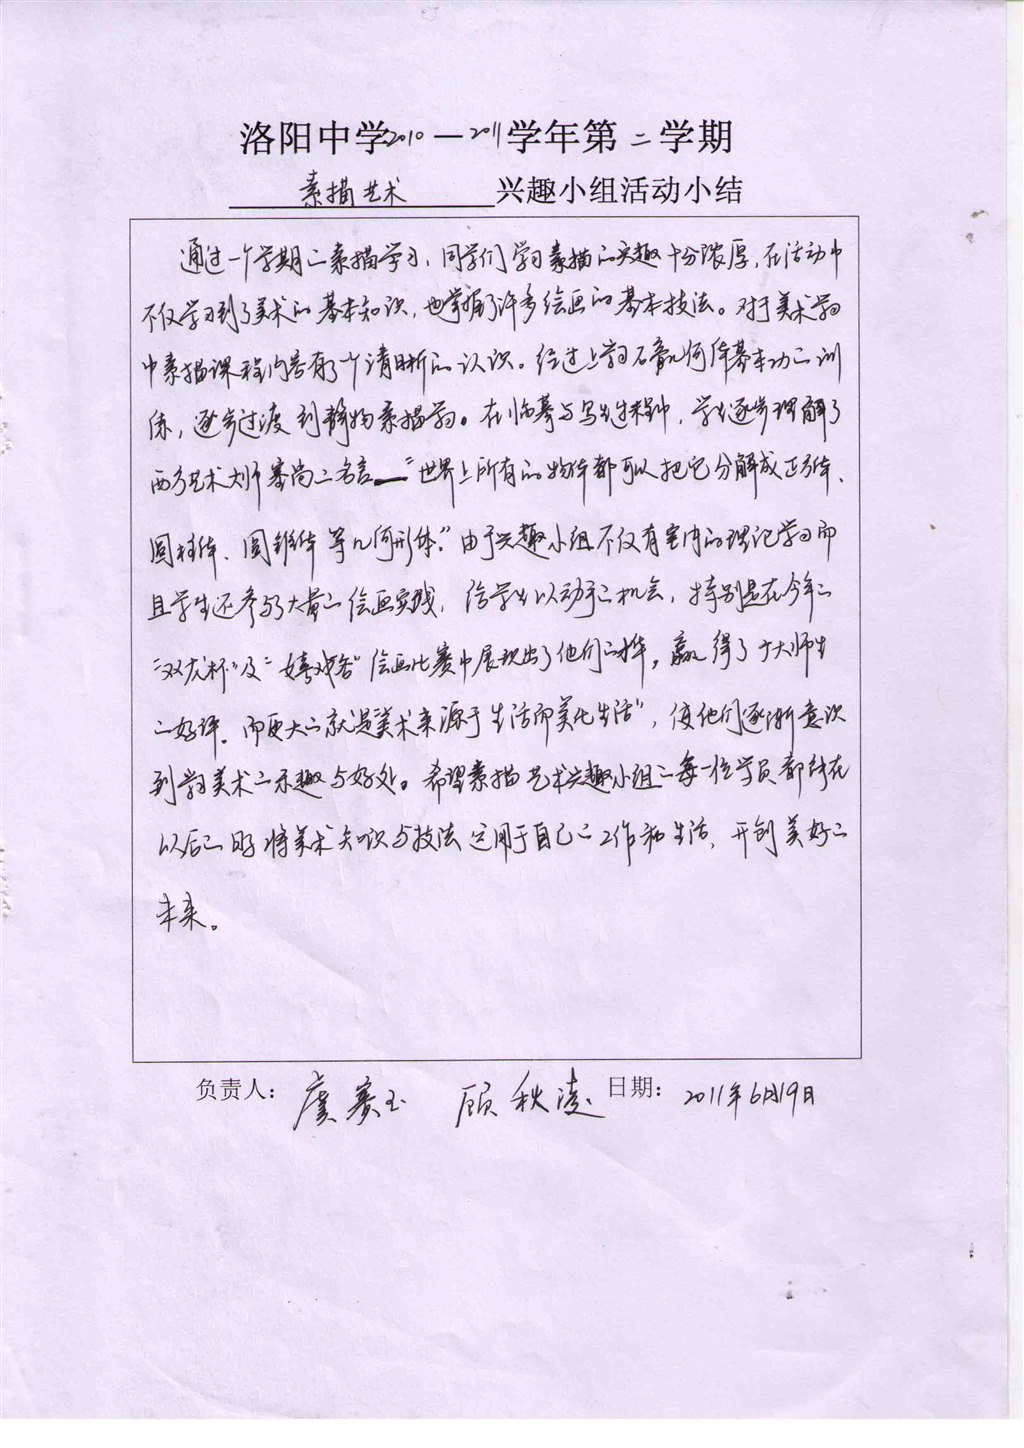 洛阳中学2010—2011学年第二学期
素描艺术 兴趣小组活动小结
通过一个学期的素描学习，同学们学习素描的兴趣十分浓厚，在活动中
不仅学习到了美术的基本知识，也掌握了许多绘画的基本技法。对于美术学习
中素描课程内容有了个清晰的认识。经过学习石膏几何体基本功的训
练，逐步过渡到静物素描学习。在临摹与写生过程中，学生逐步理解了
西方艺术大师塞尚的名言—“世界上所有的物体都可以把它分解成正方体、
圆柱体、圆锥体等几何形体”。由于兴趣小组不仅有室内的理论学习而
且学生还参与了大量的绘画实践，给学生以动手的机会，特别是在今年的
“双龙杯”及“ ”绘画比赛中展现出了他们的 ，赢得了广大师生
的好评。而更大的就是“美术来源于生活而美化生活”，使他们逐渐意识
到学习美术的乐趣与好处。希望素描艺术兴趣小组的每一位学员都能在
以后的日子将美术知识与技法运用于自己的工作和生活，开创美好的
未来。
负责人： 虞赛玉 顾秋 日期： 2011年6月19日